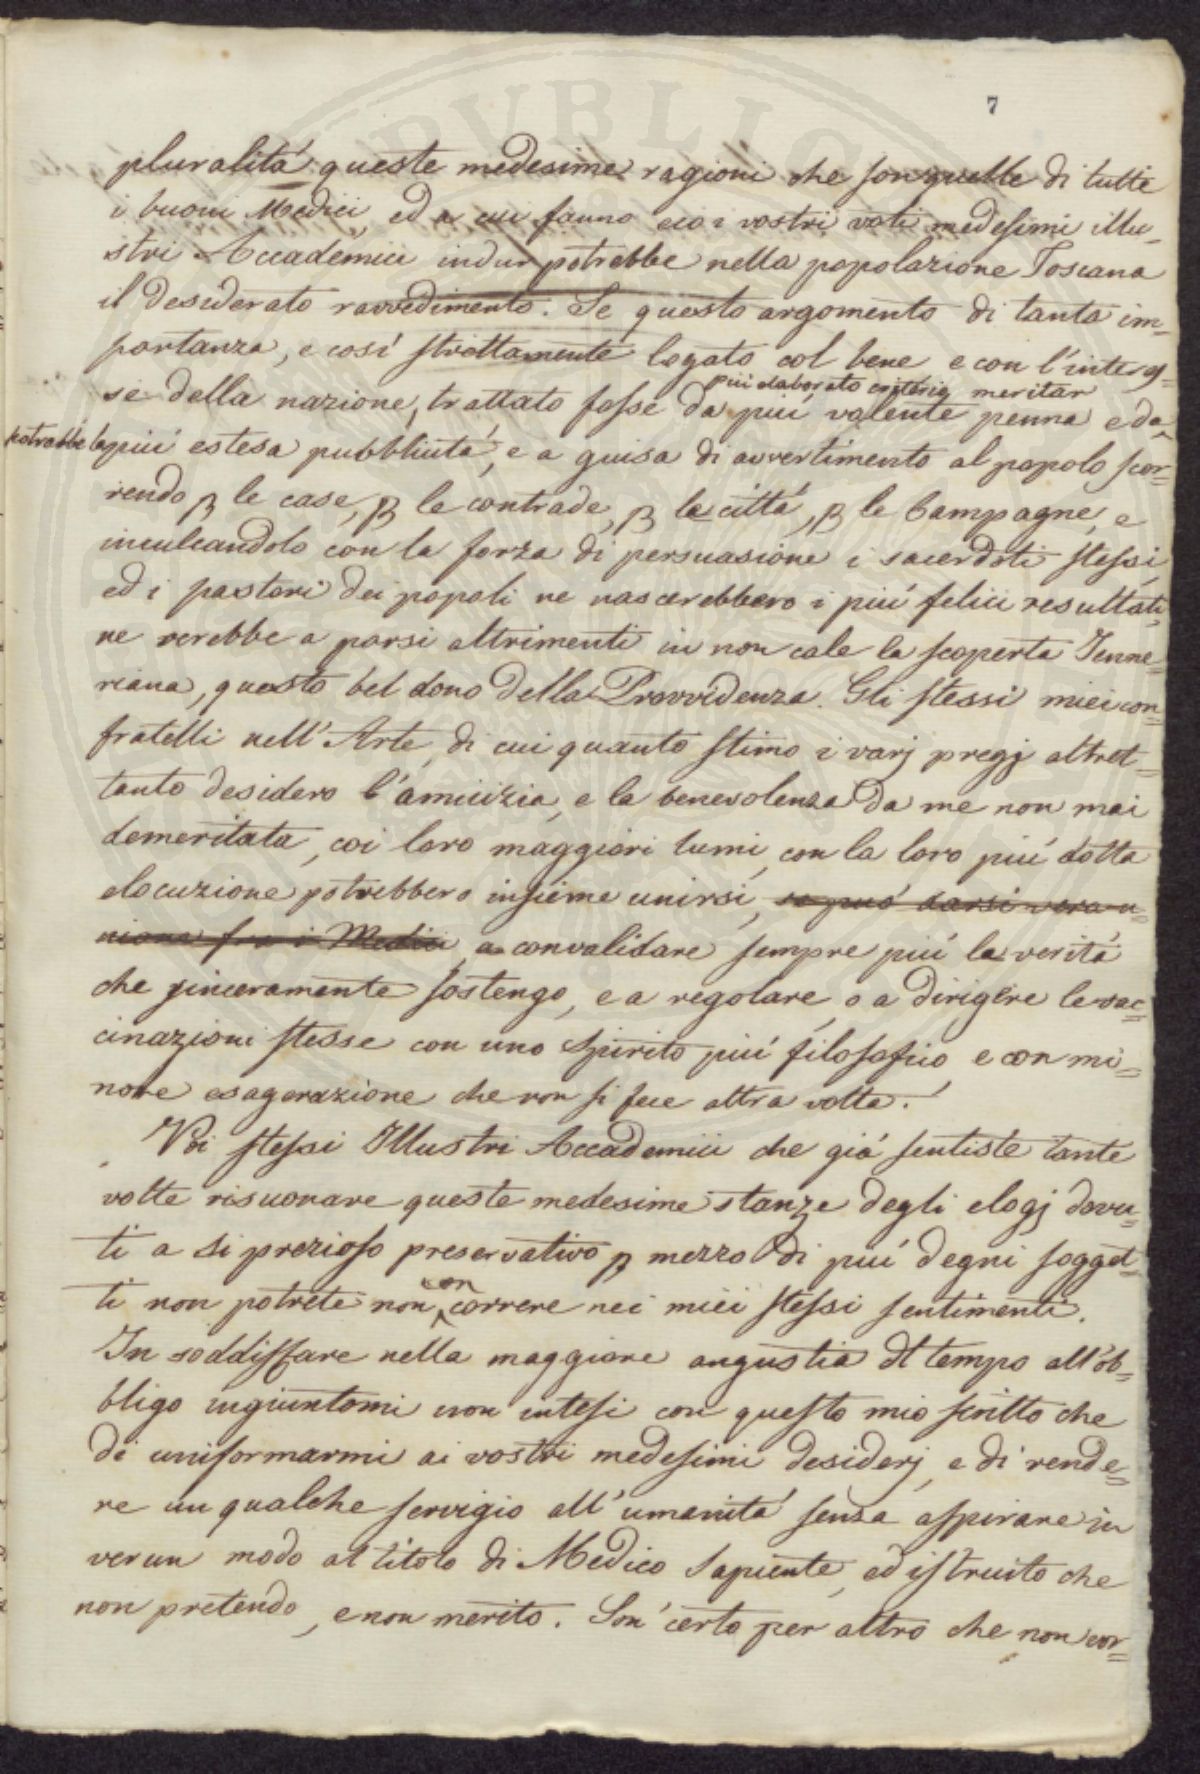 7
pluralità queste medesime ragioni che son quelle di tutti
i buoni Medici, ed a cui fanno eco i vostri voti medesimi illu-
stri Accademici indur potrebbe nella popolazione Toscana
il desiderato ravvedimento. Se questo argomento di tanta im-
portanza, e così strettamente legato col bene e con l'interes-
più elaborato criterio meritar
se della nazione, trattato fosse da più valente penna e da
potrebbe la più estesa pubblicità, e a guisa di avvertimento al popolo scor-
rendo p le case, p le contrade, p le città, p le Campagne, e
inculcandolo con la forza di persuasione i sacerdoti stessi,
ed i pastori dei popoli ne nascerebbero i più felici resultati
ne verebbe a porsi altrimenti in non cale la scoperta Jenne-
riana, questo bel dono della Provvidenza. Gli stessi miei con-
fratelli nell'Arte, di cui quanto stimo i varj pregj altret-
tanto desidero l'amicizia, e la benevolenza da me non mai
demeritata, coi loro maggiori lumi, con la loro più dotta
elocuzione potrebbero insieme unirsi, se può darsi vera u-
nione fra i Medici, a convalidare sempre più la verità
che sinceramente sostengo, e a regolare, o a dirigere le vac-
cinazioni stesse con uno spirito più filosofico e con mi-
nore esagerazione che non si fece altra volta.
Voi stessi Illustri Accademici che già sentiste tante
volte risuonare queste medesime stanze degli elogj dovu-
ti a sì prezioso preservativo p mezzo di più degni sogget-
con
ti non potrete non correre nei miei stessi sentimenti.
In soddisfare nella maggiore angustia di tempo all'ob-
bligo ingiuntomi non intesi con questo mio scritto che
di uniformarmi ai vostri medesimi desiderj, e di rende-
re un qualche servigio all'umanità senza aspirare in
verun modo al titolo di Medico Sapiente, ed istruito che
non pretendo, e non merito. Son certo per altro che non vor-